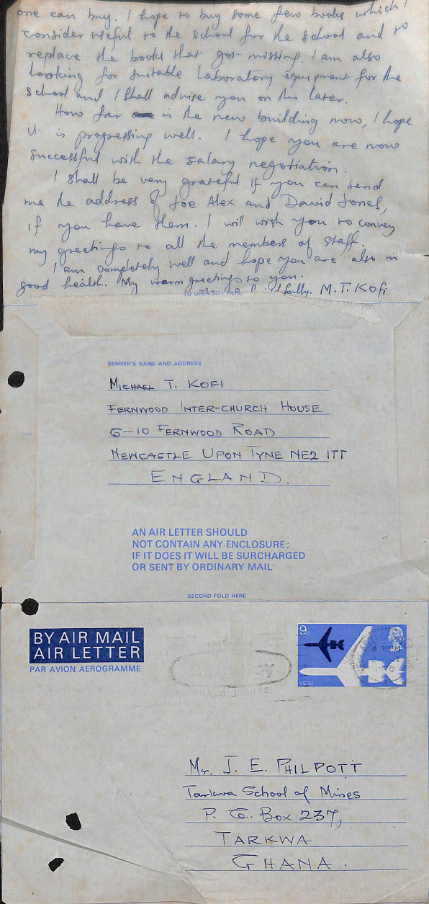 one can buy. I hope to buy some few books which I
consider useful to the school for the school and to
replace the books that got missing. I am also
looking for suitable Laboratory equipment for the
school and I shall advise you on this later.
How far is the new building now, I hope
it is progressing well. I hope you are now
successful with the salary negotiation.
I shall be very grateful if you can send
me the address of Joe Alex and David Jones,
if you have them. I will wish you to convey
my greetings to all the members of staff.
I am completely well and hope you are also in
good health. My warm greetings to you.
M.T. Kofi
SENDER'S NAME AND ADDRESS
MICHAEL T. KOFI
FERNWOOD INTER-CHURCH HOUSE
6-10 FERNWOOD ROAD
NEWCASTLE UPON TYNE NE2 1TT
ENGLAND.
AN AIR LETTER SHOULD
NOT CONTAIN ANY ENCLOSURE;
IF IT DOES IT WILL BE SURCHARGED
OR SENT BY ORDINARY MAIL
SECOND FOLD HERE
BY AIR MAIL
AIR LETTER
PAR AVION AEROGRAMME
9d
Mr. J. E. PHILPOTT
Tarkwa School of Mines
P. O. Box 237,
TARKWA
GHANA.